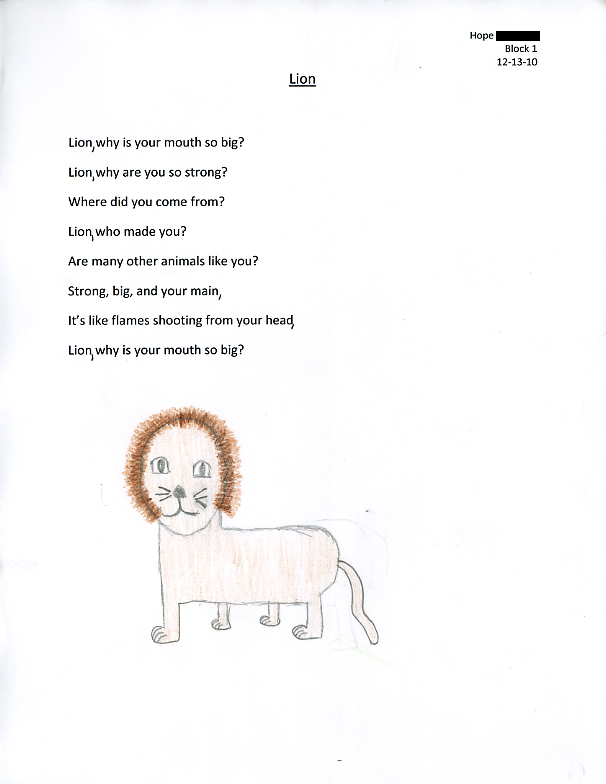 Hope
Block 1
12-13-10
Lion
Lion, why is your mouth so big?
Lion, why are you so strong?
Where did you come from?
Lion, who made you?
Are many other animals like you?
Strong, big, and your main,
It's like flames shooting from your head,
Lion, why is your mouth so big?